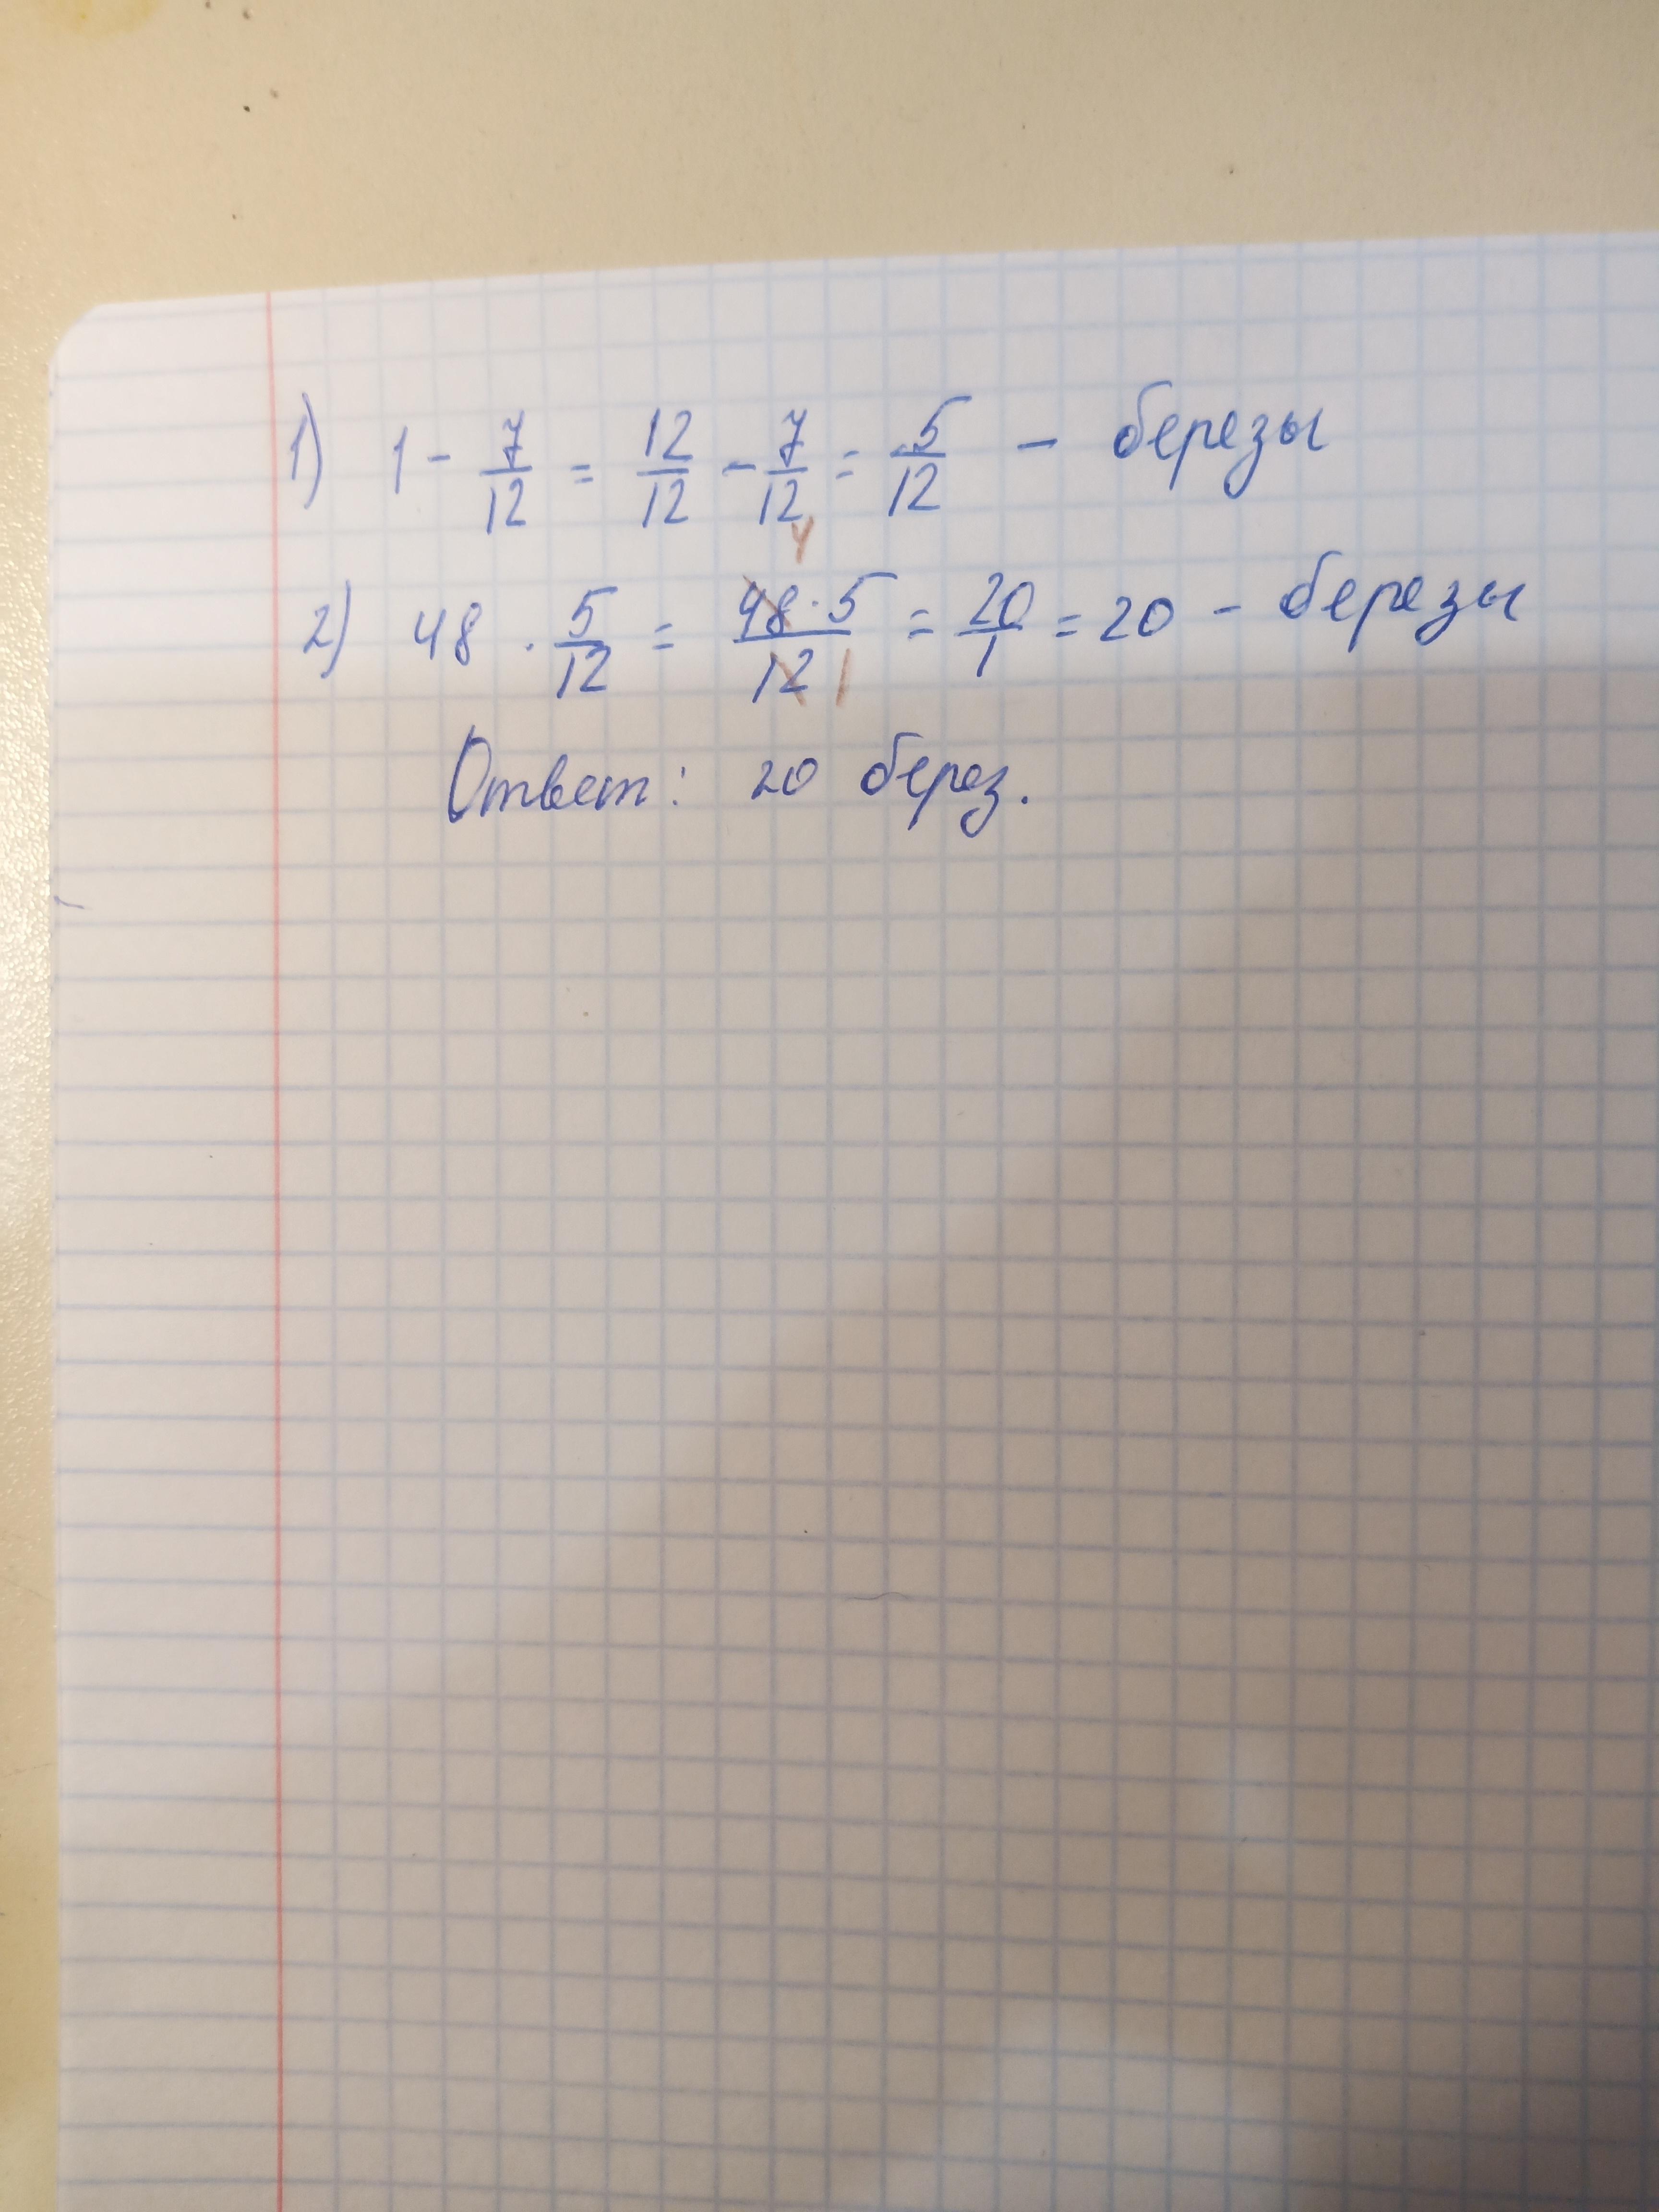 1) 1 - 7/12 = 12/12 - 7/12 = 5/12 - березы
2) 48 · 5/12 = 48 · 5/12 = 20/1 = 20 - березы
4
1
Ответ: 20 берез.